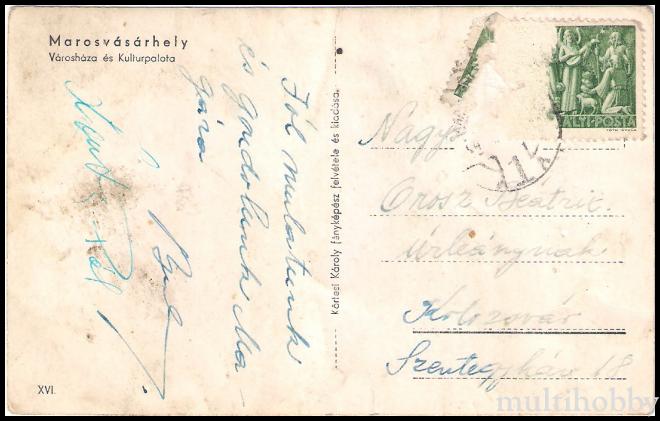 Marosvásárhely
Városháza és Kulturpalota
Jól mulatunk
és gondolunk Ma-
gára
Körtesi Károly fényképész felvétele és kiadása.
ALYI POSTA
Nagy
Orosz Beatric.
úrleánynak
Kolozsvár
Szentegyház 18
XVI.
multihobby